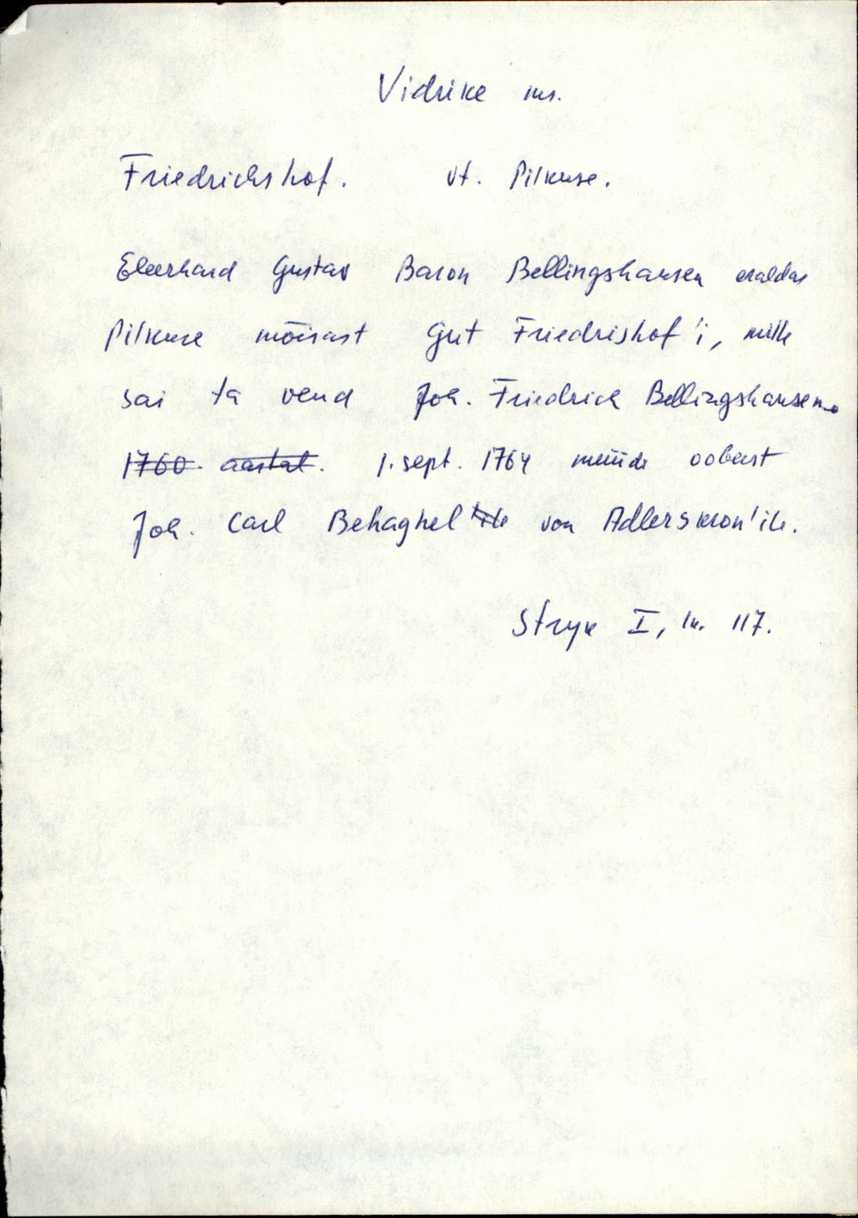 Vidrike ms.
Friedrichshof. vt. Pilkuse.
Eberhard Gustav Baron Bellingshausen eraldas
Pilkuse mõisast Gut Friedrishof'i, mille
sai ta vend Joh. Friedrich Bellingshausen.
1760. aastat. 1. sept. 1764 müüde oobest
Joh. Carl Behaghel von Adlerskron'ile.
Stryk I, lk. 117.